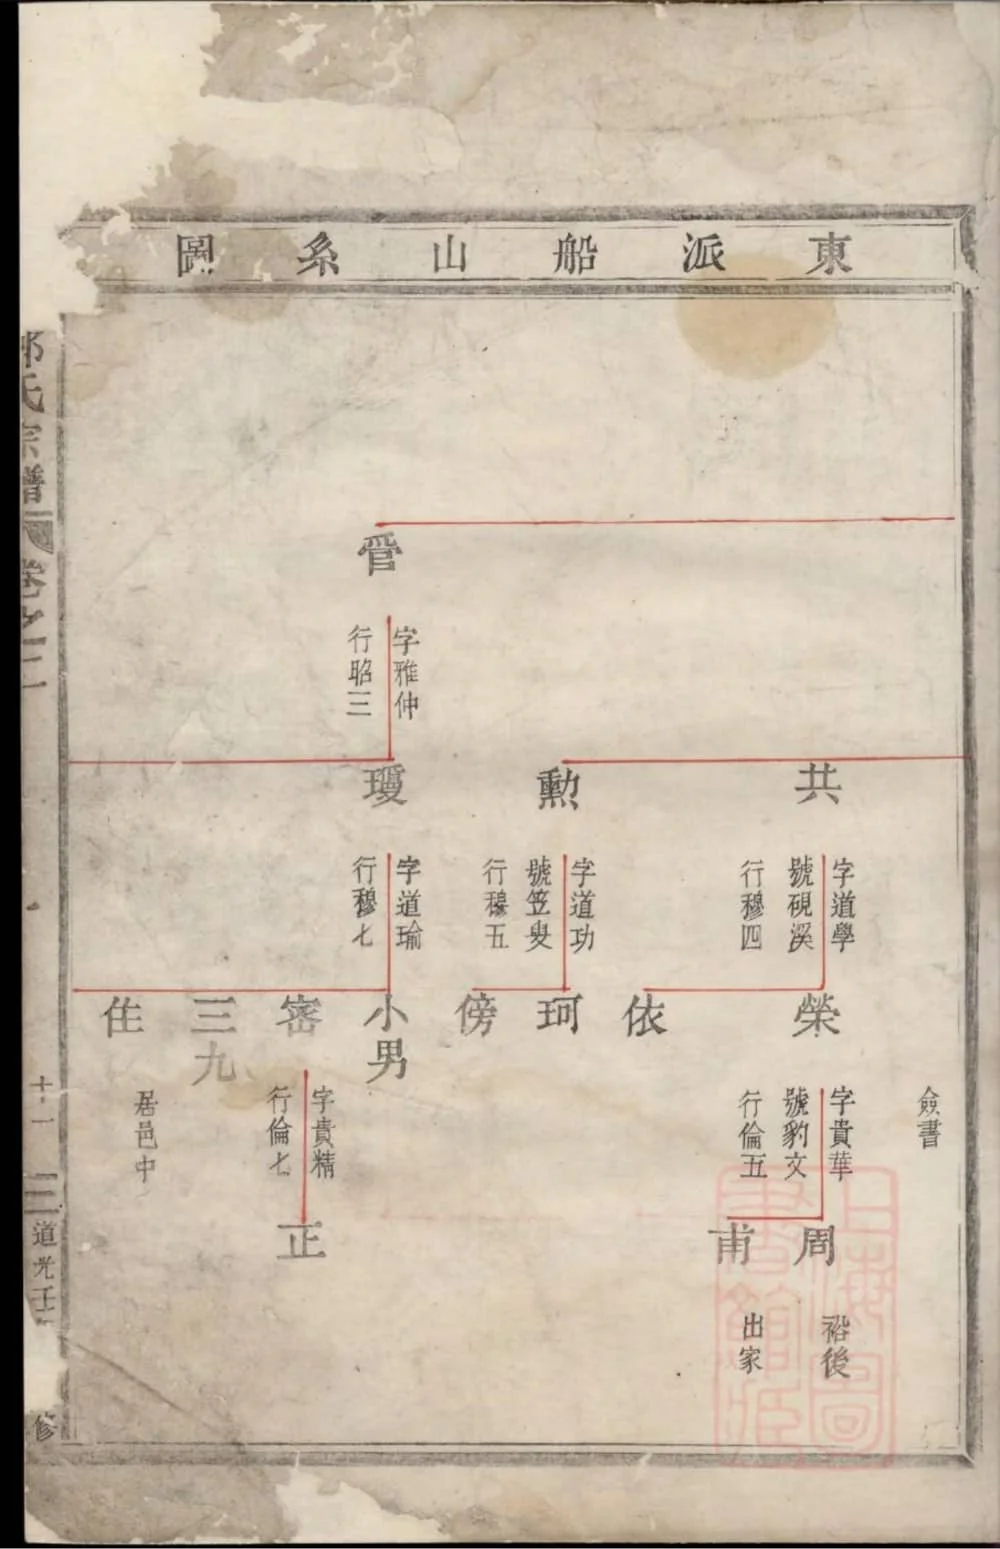 東派船山系圖
管
字雅仲
行昭三
共
字道學
號硯溪
行穆四
勲
字道功
號笠叟
行穆五
瓊
字道瑜
行穆七
僉書
榮
字貴華
號豹文
行倫五
依
珂
傍
小男
密
字貴精
行倫七
三九
住
居邑中
周
裕後
甫
出家
正
氏宗譜
卷之二
十一
三
道光壬
修
上海圖
書館藏